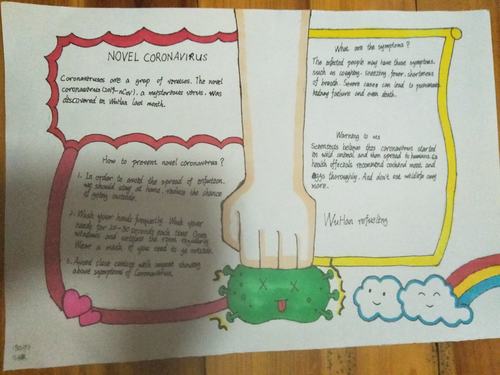 NOVEL CORONAVIRUS
Coronaviruses are a group of viruses. The novel
coronavirus (2019-nCov), a mysterious virus, was
discovered in WuHan last month.
How to prevent novel coronavirus?
1. In order to avoid the spread of infection,
we should stay at home, reduce the chance
of going outside.
2. Wash your hands frequently. Wash your
hands for 20-30 seconds each time. Open
windows and ventilate the room regularly.
Wear a mask if you need to go outside.
3. Avoid close contact with anyone showing
about symptoms of Coronavirus.
What are the symptoms?
The infected people may have these symptoms,
such as coughing, sneezing, fever, shortness of
breath. Severe cases can lead to pneumonia,
kidney failure and even death.
Warning to us
Scientists believe this coronavirus started
in wild animal and then spread to humans. So
health officials recommend cooking meat and
eggs thoroughly. And don't eat wildlife any
more.
WuHan